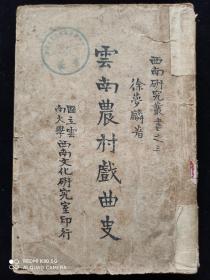 西南研究叢書之三
徐夢麟著
雲南農村戲曲史
國立雲南大學西南文化研究室印行
REDMI K30 5G